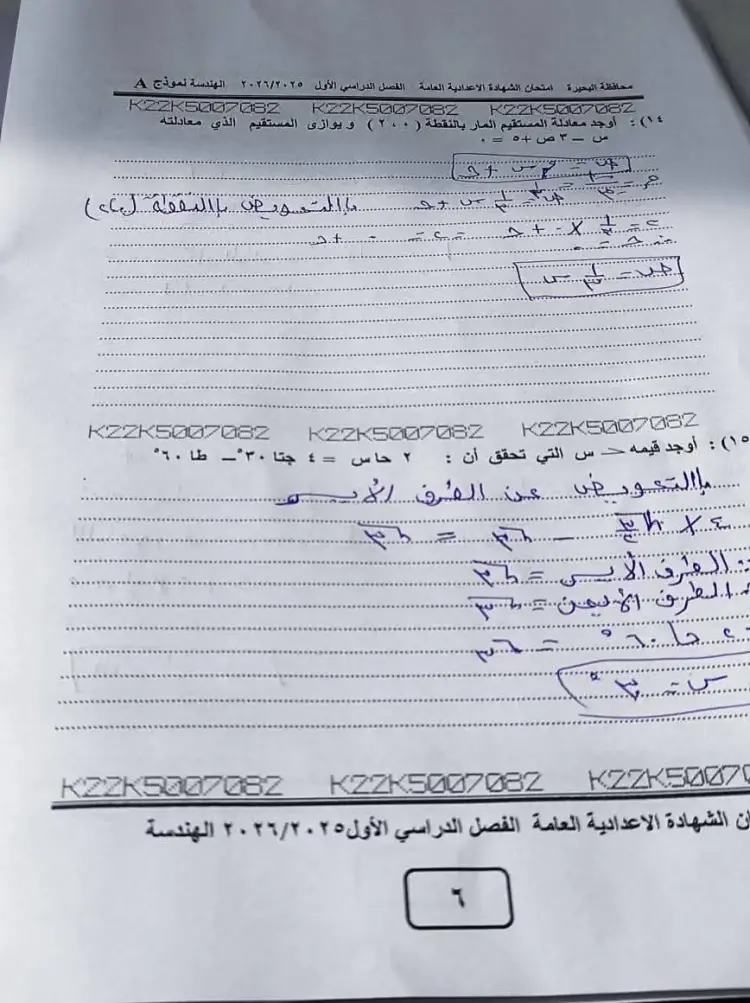 محافظة البحيرة امتحان الشهادة الاعدادية العامة الفصل الدراسي الأول ٢٠٢٦/٢٠٢٥ الهندسة نموذج A
K22K5007082 K22K5007082 K22K5007082
١٤): أوجد معادلة المستقيم المار بالنقطة (٢،٠) ويوازى المستقيم الذي معادلته
س – ٣ ص + ٥ = ٠
ص = م س + حـ
م = ١/٣ ص = ١/٣ س + حـ باالتعويض باالنقطة (٢،٠)
٢ = ١/٣ × ٠ + حـ = ٢ = ٠ + حـ
حـ = ٠
ص = ١/٣ س
K22K5007082 K22K5007082 K22K5007082
١٥): أوجد قيمه س التي تحقق أن : ٢ حاس = ٤ جتا ٣٠° – طا ٦٠°
باالتعويض عن الطرف الأيسر
٤ × √٣/٢ – √٣ = √٣
الطرف الأيسر = √٣
الطرف الأيمن = √٣
٢ حا ٦٠° = √٣
س = ٣°
K22K5007082 K22K5007082 K22K50070
ن الشهادة الاعدادية العامة الفصل الدراسي الأول ٢٠٢٦/٢٠٢٥ الهندسة
٦